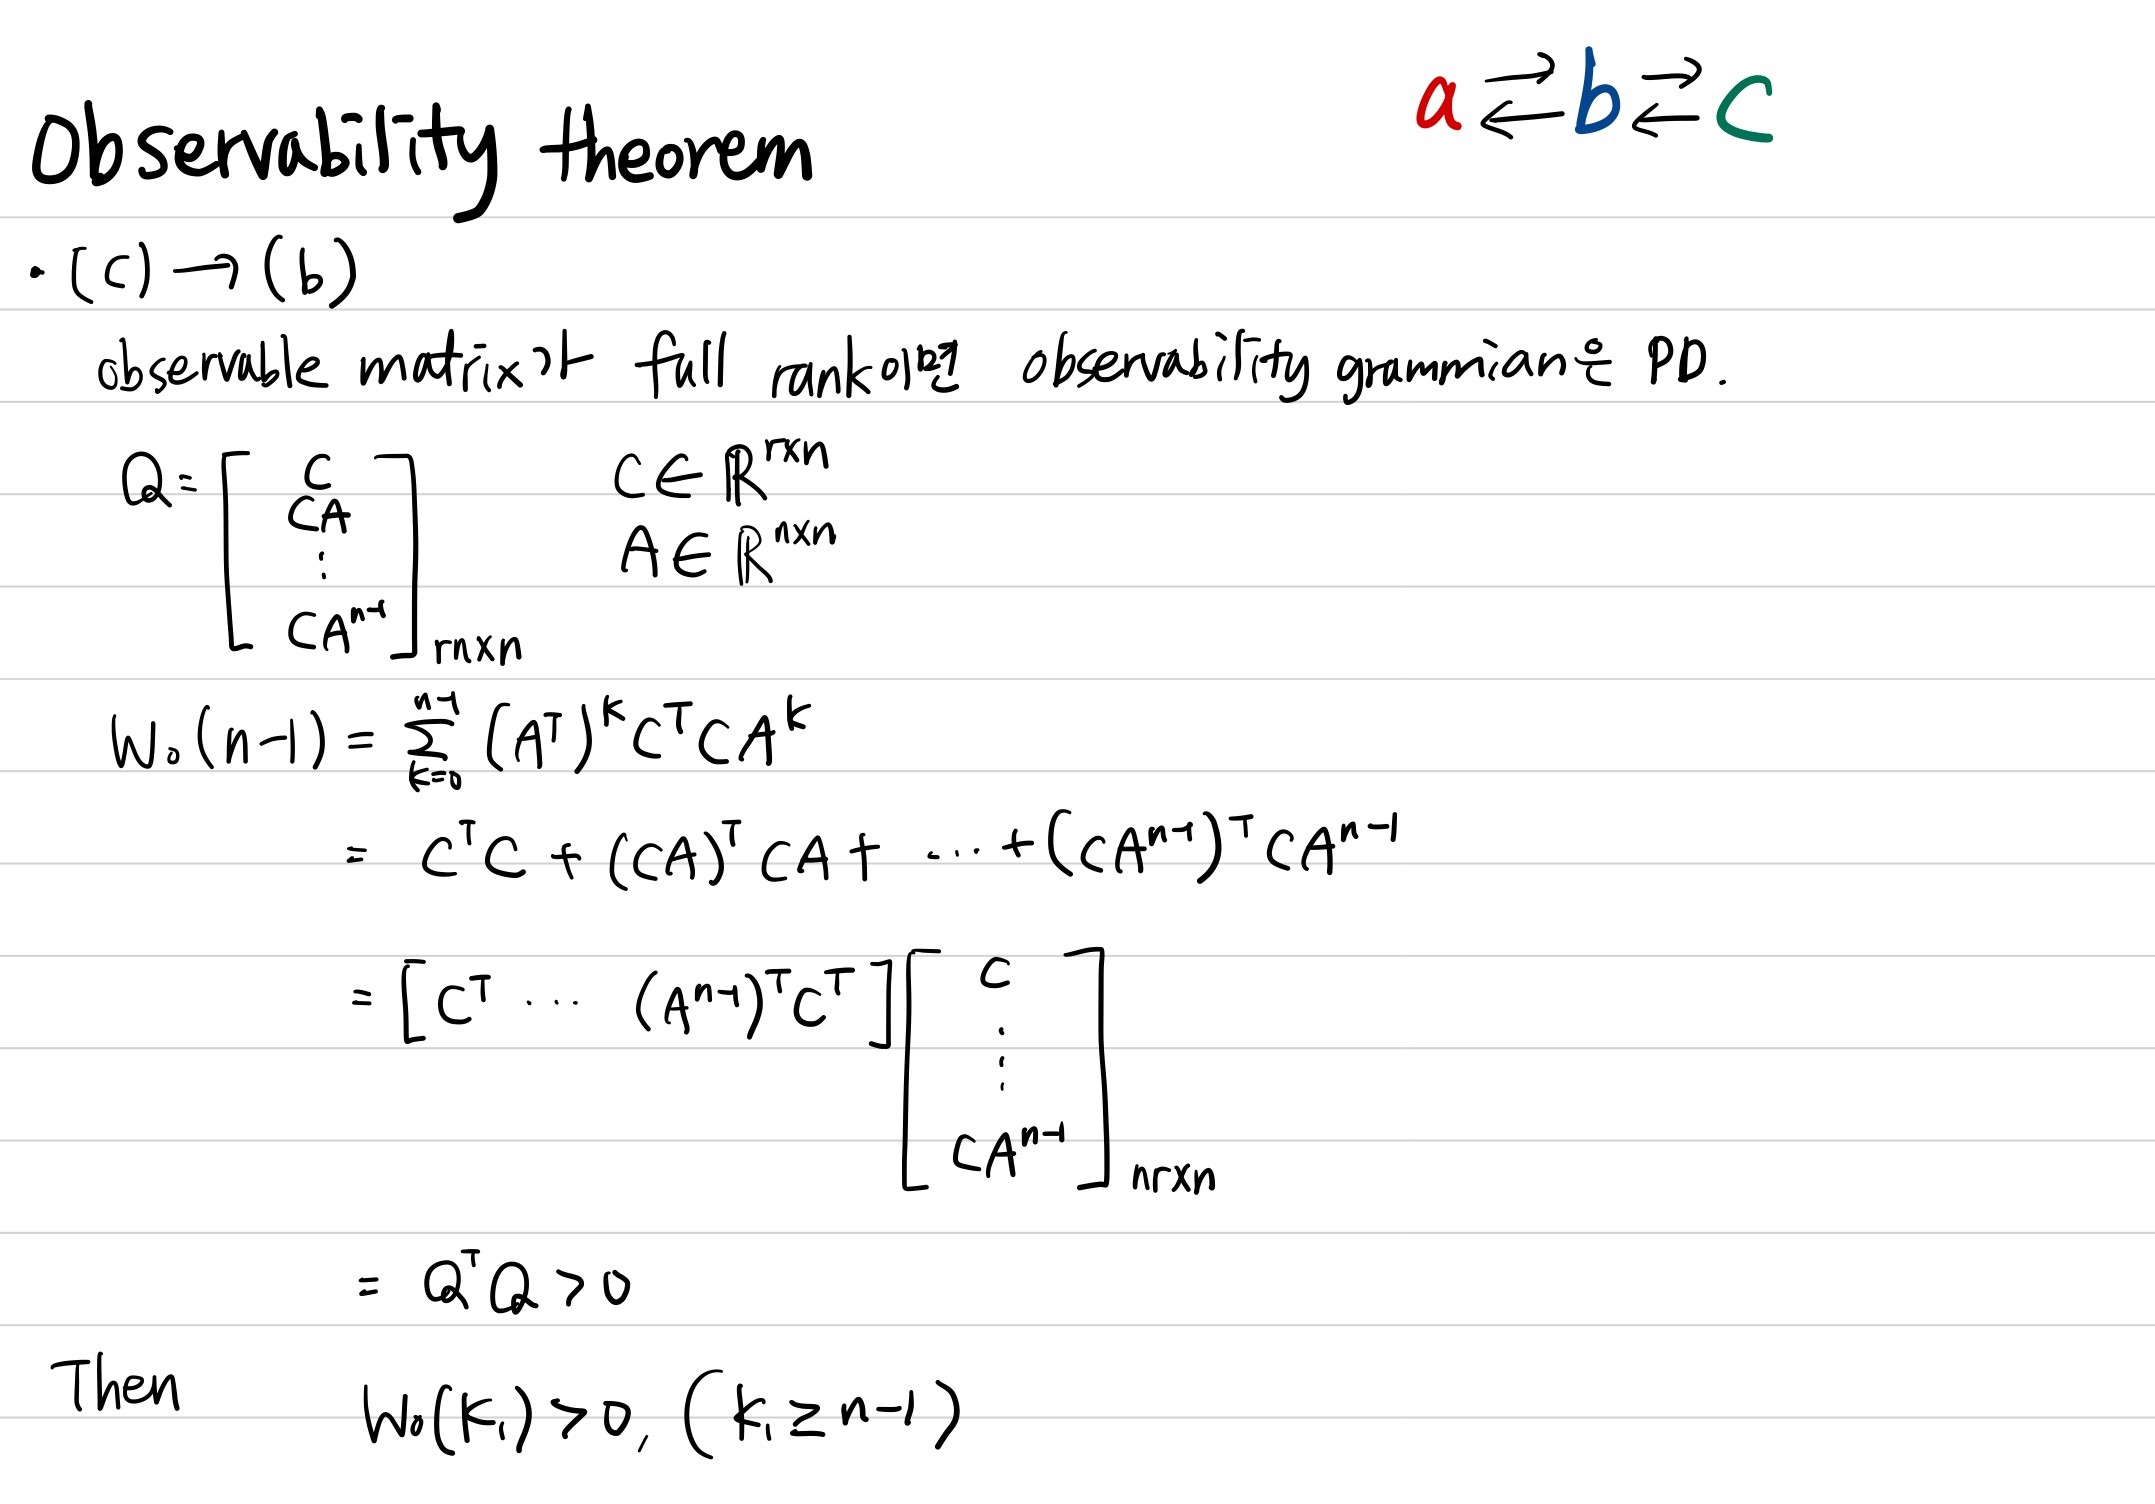 a ⇄ b ⇄ c
Observability theorem
· (c) → (b)
observable matrix가 full rank이면 observability grammian은 PD.
Q = [ C CA ⋮ CAⁿ⁻¹ ] rn×n
C ∈ ℝ^{r×n}
A ∈ ℝ^{n×n}
W₀(n-1) = Σ_{k=0}^{n-1} (Aᵀ)^k Cᵀ C A^k
= CᵀC + (CA)ᵀCA + ⋯ + (CAⁿ⁻¹)ᵀCAⁿ⁻¹
= [ Cᵀ ⋯ (Aⁿ⁻¹)ᵀCᵀ ] [ C ⋮ CAⁿ⁻¹ ] nr×n
= QᵀQ > 0
Then W₀(k₁) > 0, (k₁ ≥ n-1)